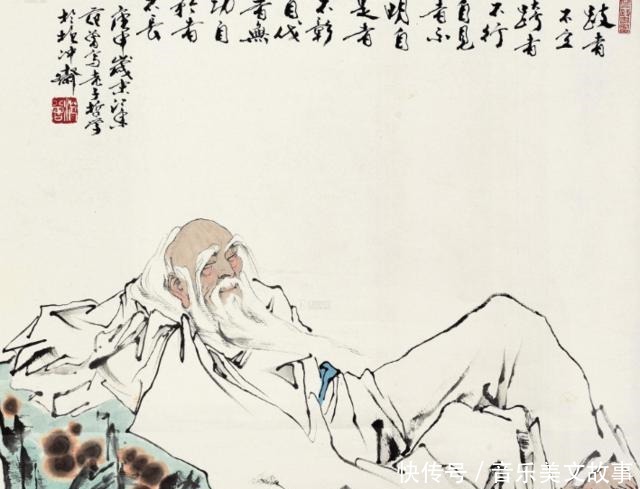 跂者
不立
跨者
不行
自見
者不
明自
是者
不彰
自伐
者無
功自
矜者
不長
庚申歲末江東
范曾寫老子哲學
於抱冲齋
快传号 / 音乐美文故事